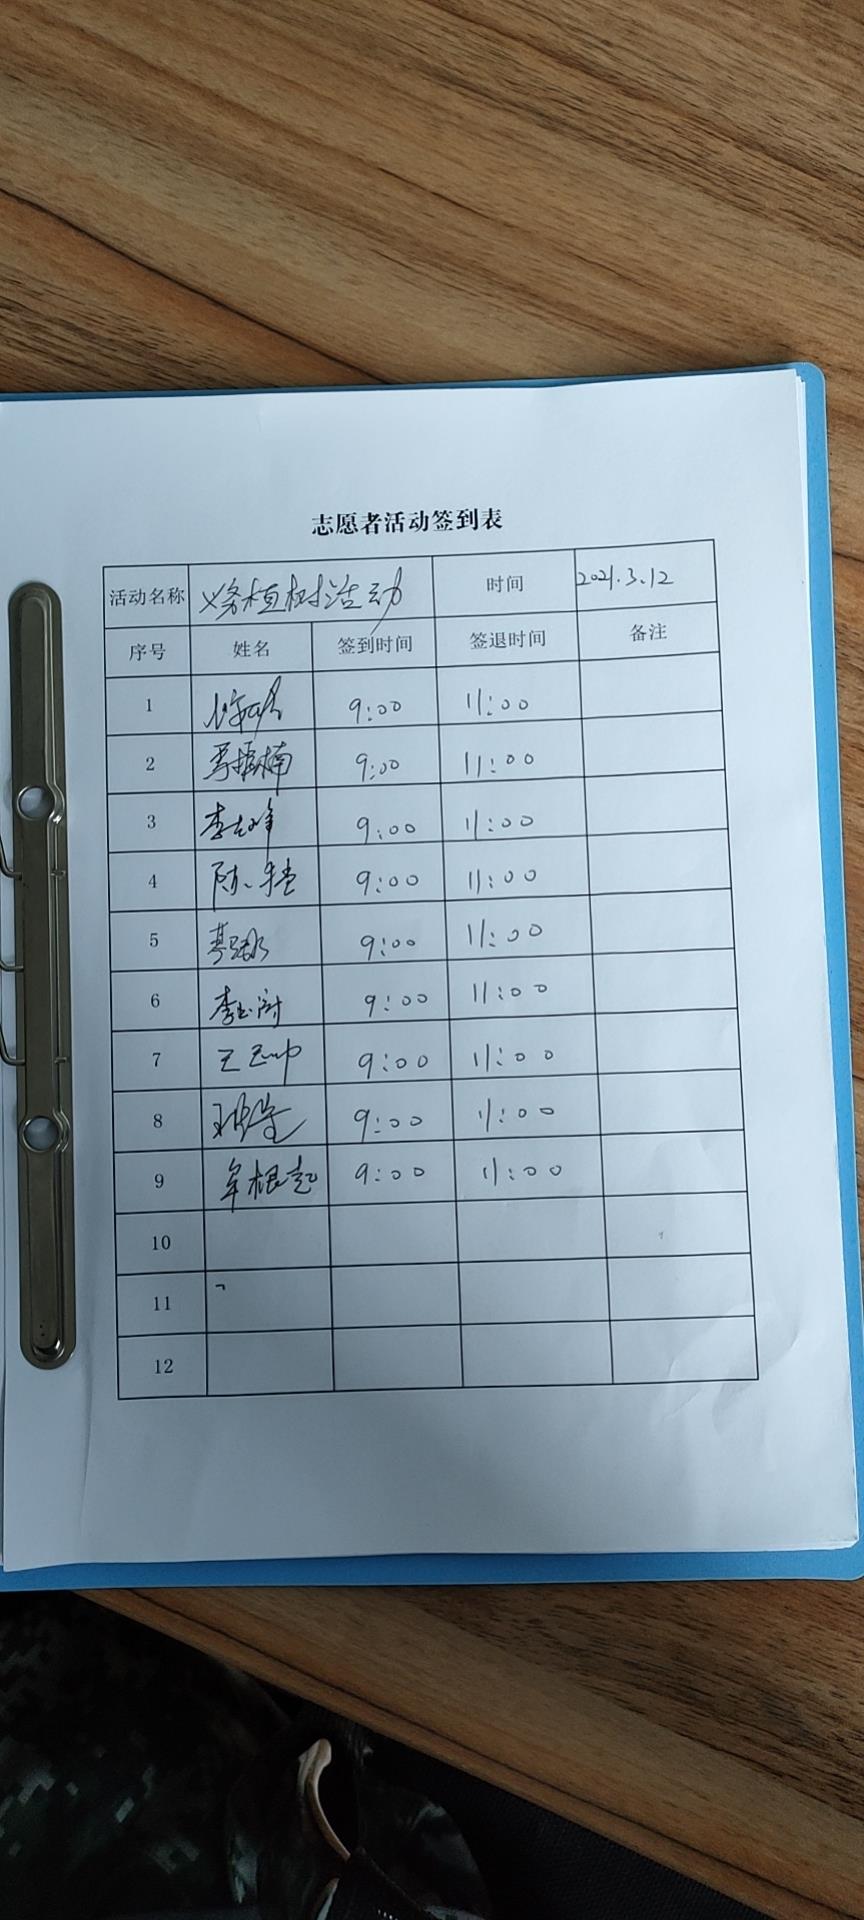 志愿者活动签到表
活动名称 义务植树活动 时间 2021.3.12
序号 姓名 签到时间 签退时间 备注
1 9:00 11:00
2 9:00 11:00
3 9:00 11:00
4 9:00 11:00
5 9:00 11:00
6 9:00 11:00
7 9:00 11:00
8 9:00 11:00
9 牟根起 9:00 11:00
10
11
12